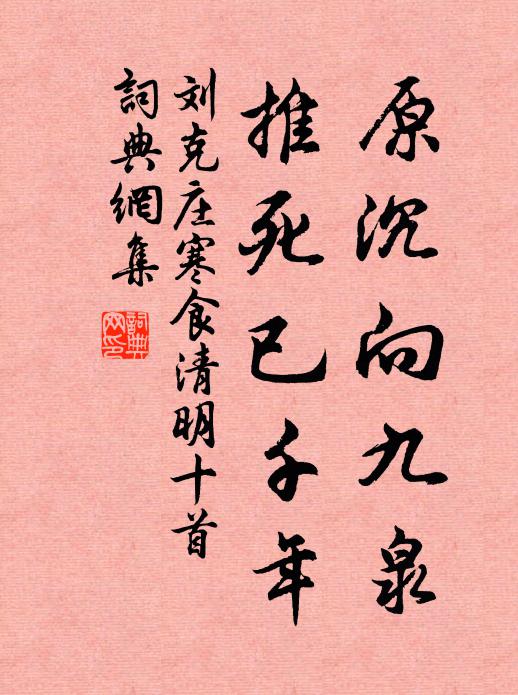 原沉向九泉
推死已千年
刘克庄寒食清明十首
詞典網集
詞典网印